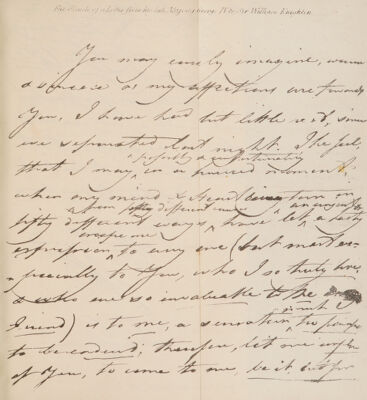 Fac Simile of a Letter from his late Majesty George IV to Sir William Knighton
You may easily imagine, warm
& sincere as my affections are towards
You, I have had but little rest, since
we separated last night. The feel,
that I may possibly & unfortunately in a hurried moment,
when my mind & heart torn in
fifty different ways from fifty different causes have let an unjust or a hasty
expression escape me to any one (but most es-
pecially to You, who I so truly love,
& who are so invaluable to me as my
Friend) is to me, a sensation much too painful
to be endured; therefore, let me
of You, to come to me, be it but for